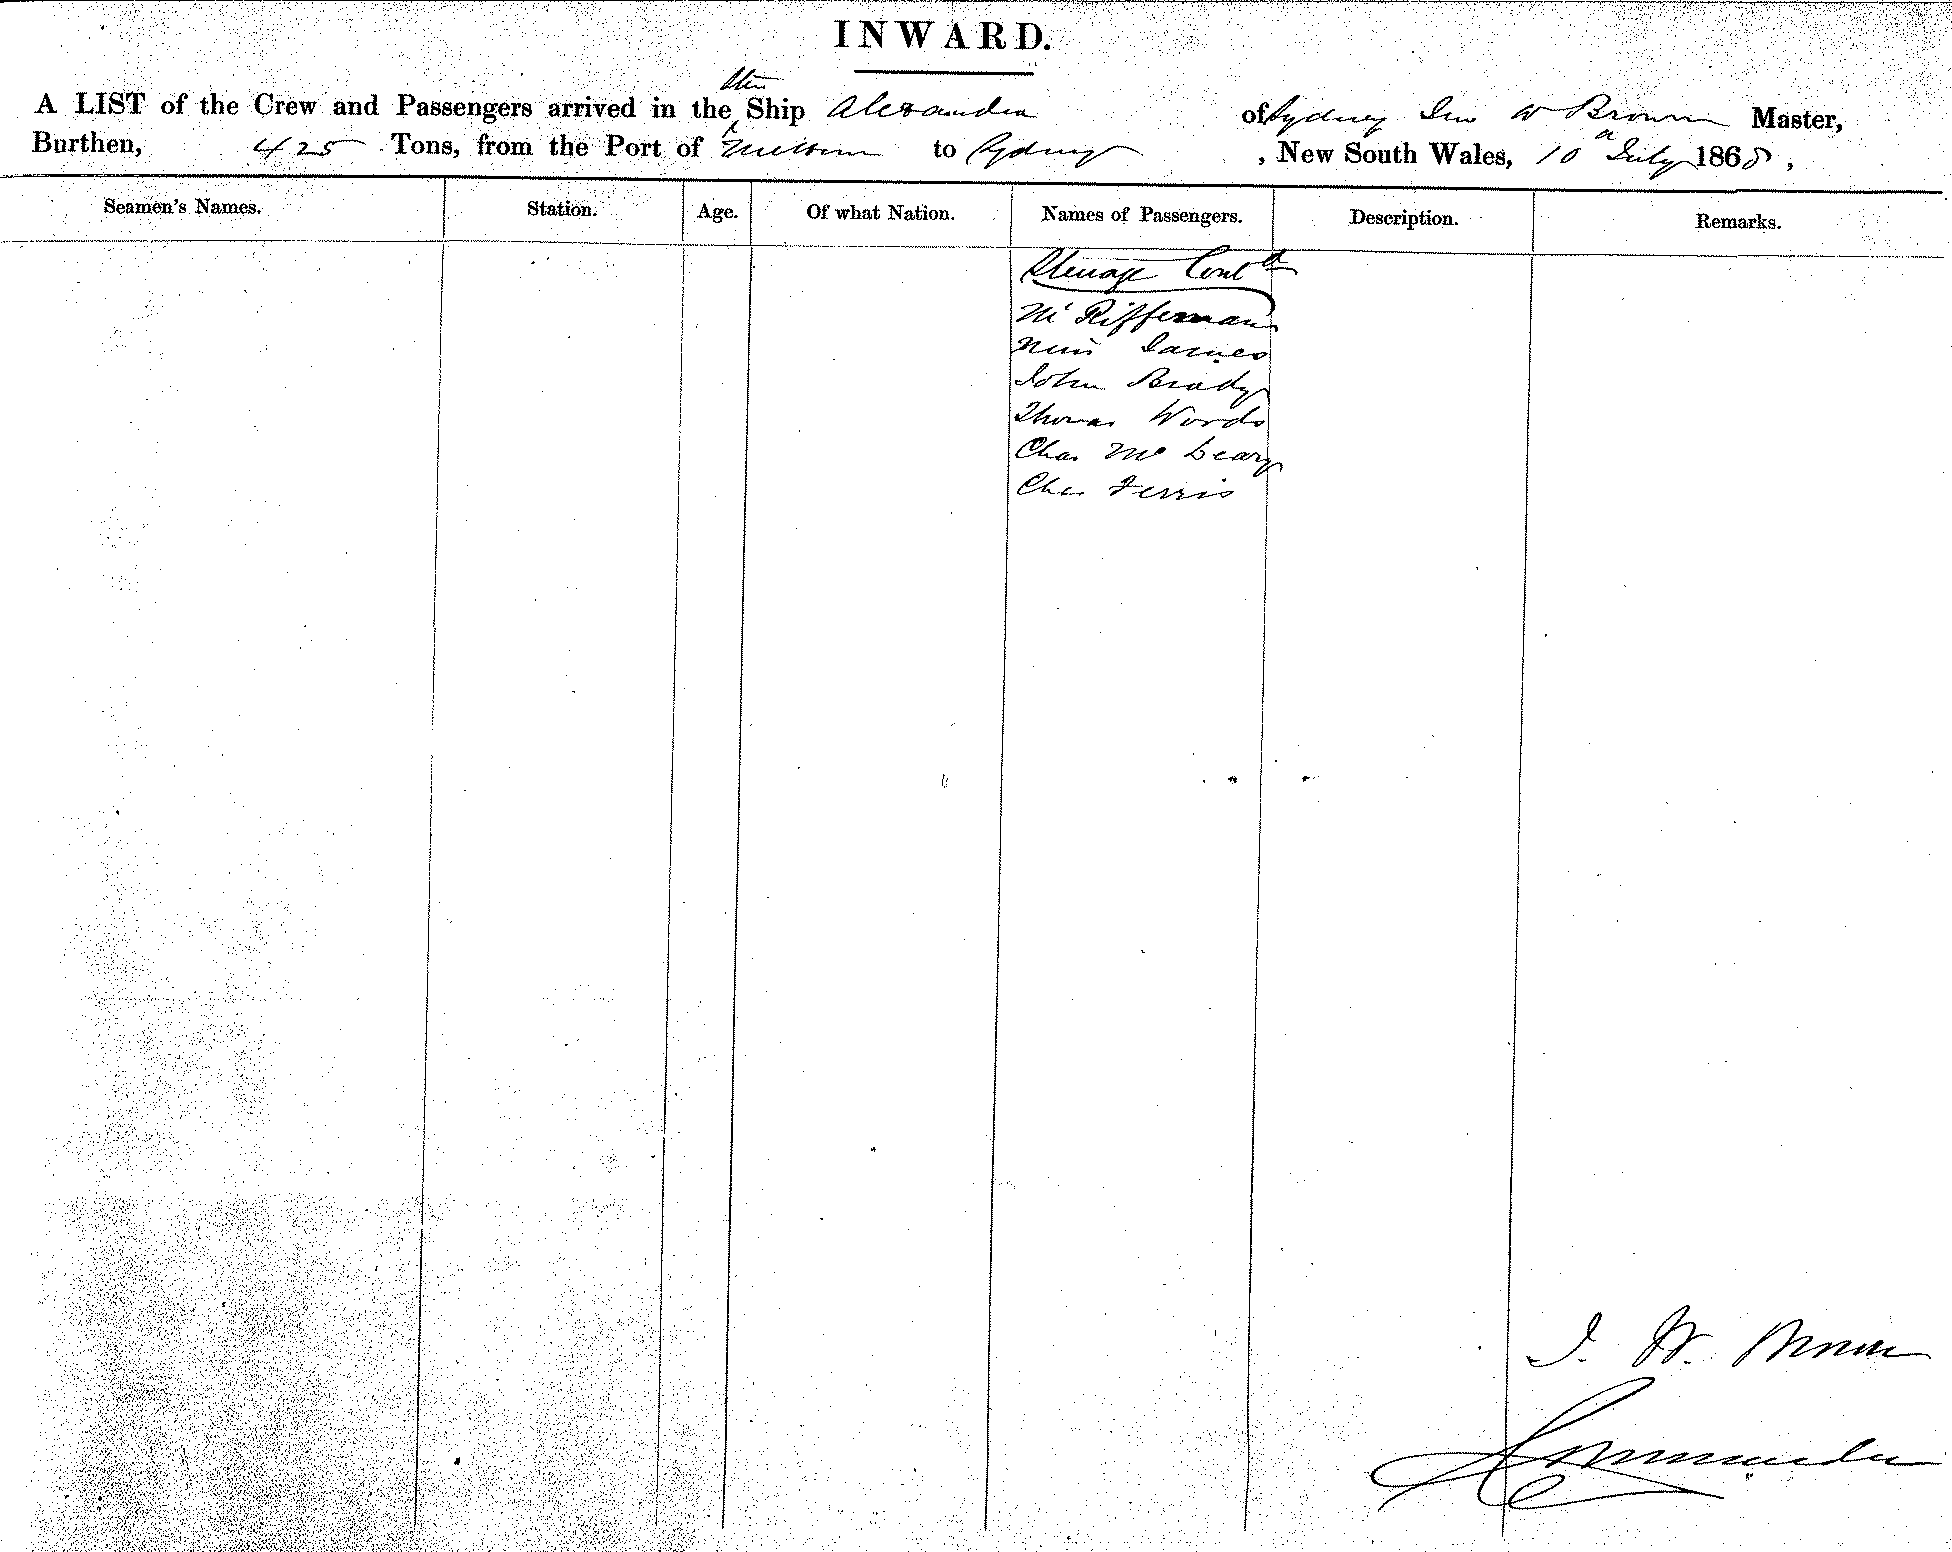 INWARD.
A LIST of the Crew and Passengers arrived in the Stm Ship Alexandra of Sydney Jno W Brown Master,
Burthen, 425 Tons, from the Port of Melbou to Sydney, New South Wales, 10 July 1868,
Seamen's Names. Station. Age. Of what Nation. Names of Passengers. Description. Remarks.
Steerage Contd
Mr Rifferman
James
John Brady
Thomas Words
Chas Mc Leary
Chas Ferris
J. W. Brown
Commander